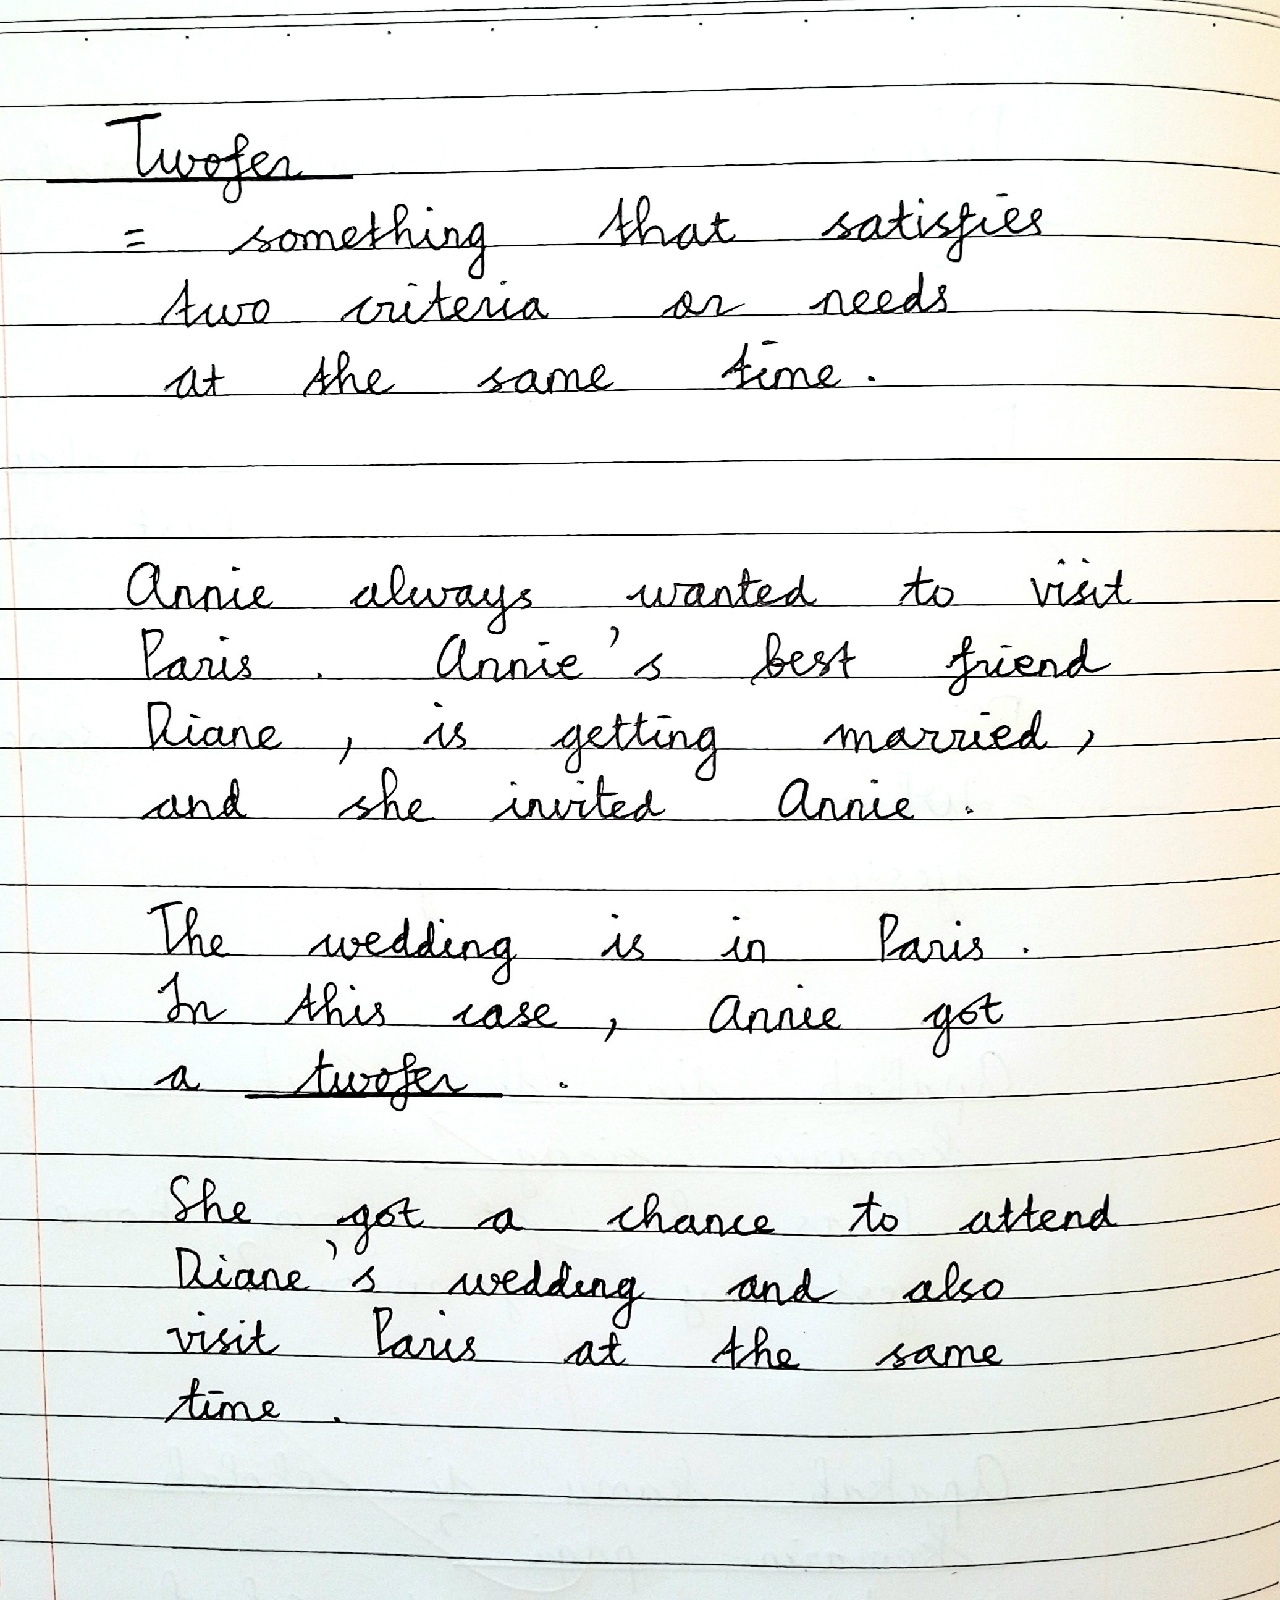 Twofer
= something that satisfies
two criteria or needs
at the same time.
Annie always wanted to visit
Paris. Annie's best friend
Diane, is getting married,
and she invited Annie.
The wedding is in Paris.
In this case, Annie got
a twofer.
She got a chance to attend
Diane's wedding and also
visit Paris at the same
time.